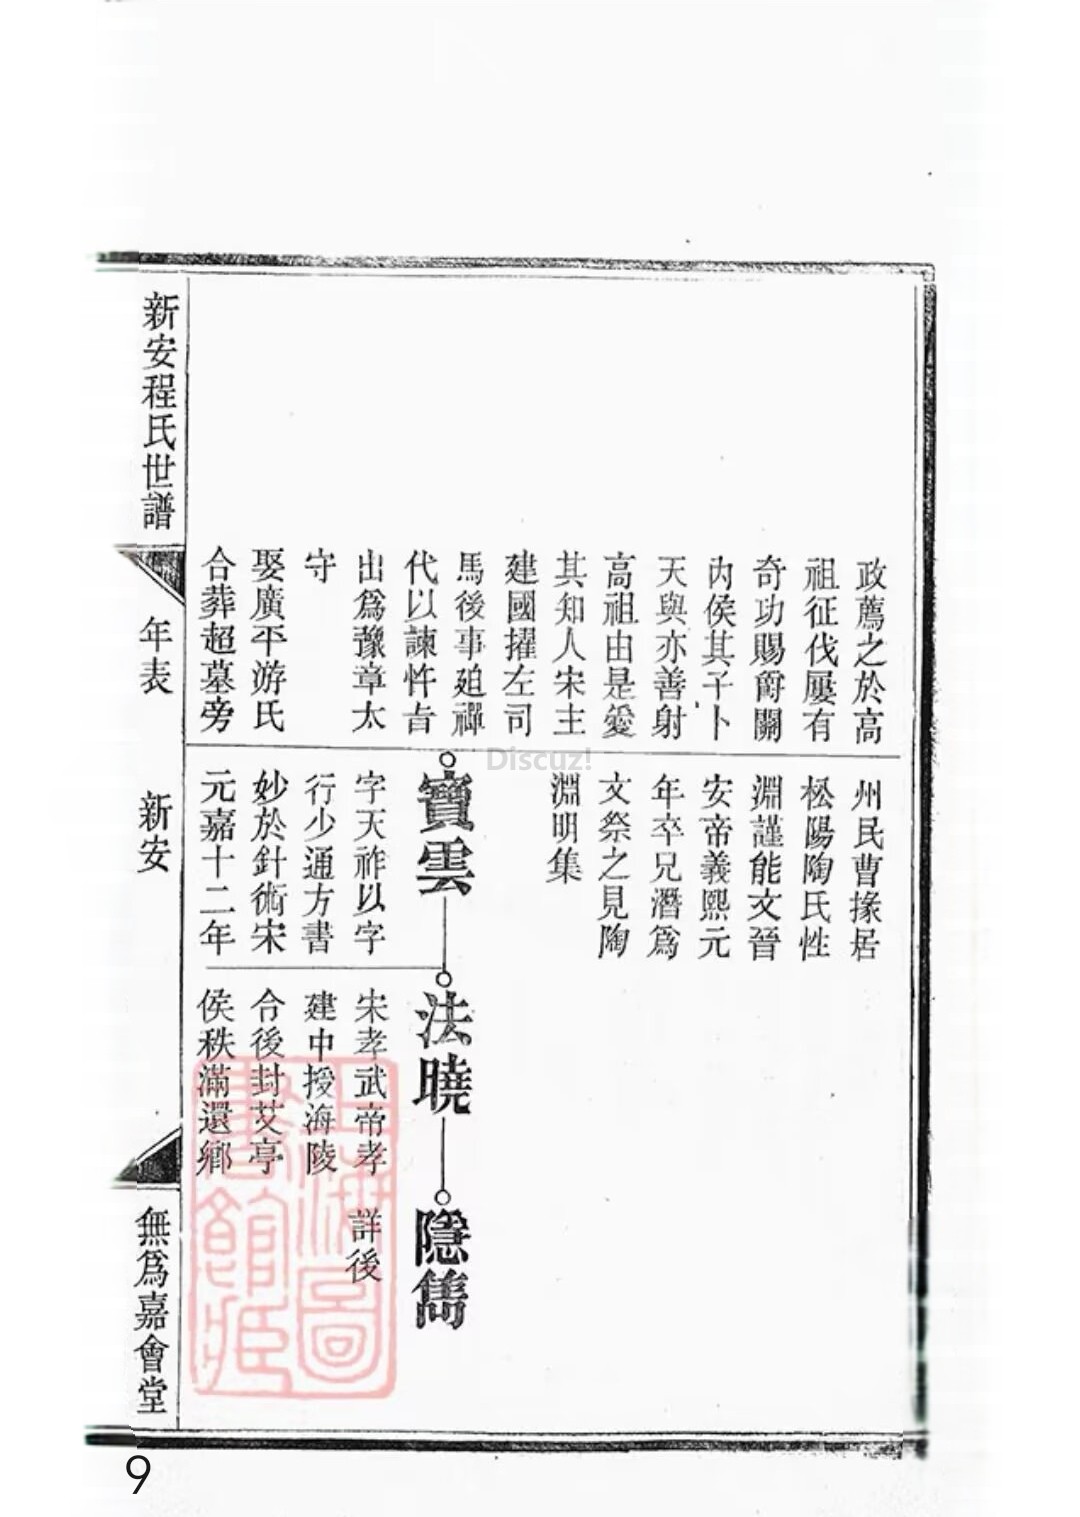 政薦之於高
祖征伐屢有
奇功賜爵關
內侯其子卜
天與亦善射
高祖由是愛
其知人宋主
建國擢左司
馬後事廹禪
代以諫忤旨
出爲豫章太
守
娶廣平游氏
合葬超墓旁
州民曹掾居
松陽陶氏性
淵謹能文晉
安帝義熙元
年卒兄潛爲
文祭之見陶
淵明集
寶雲
字天祚以字
行少通方書
妙於針術宋
元嘉十二年
法曉
宋孝武帝孝
建中授海陵
令後封艾亭
侯秩滿還鄉
隱雋
詳後
新安程氏世譜
年表
新安
無爲嘉會堂
上海圖
書館藏
Discuz!
9